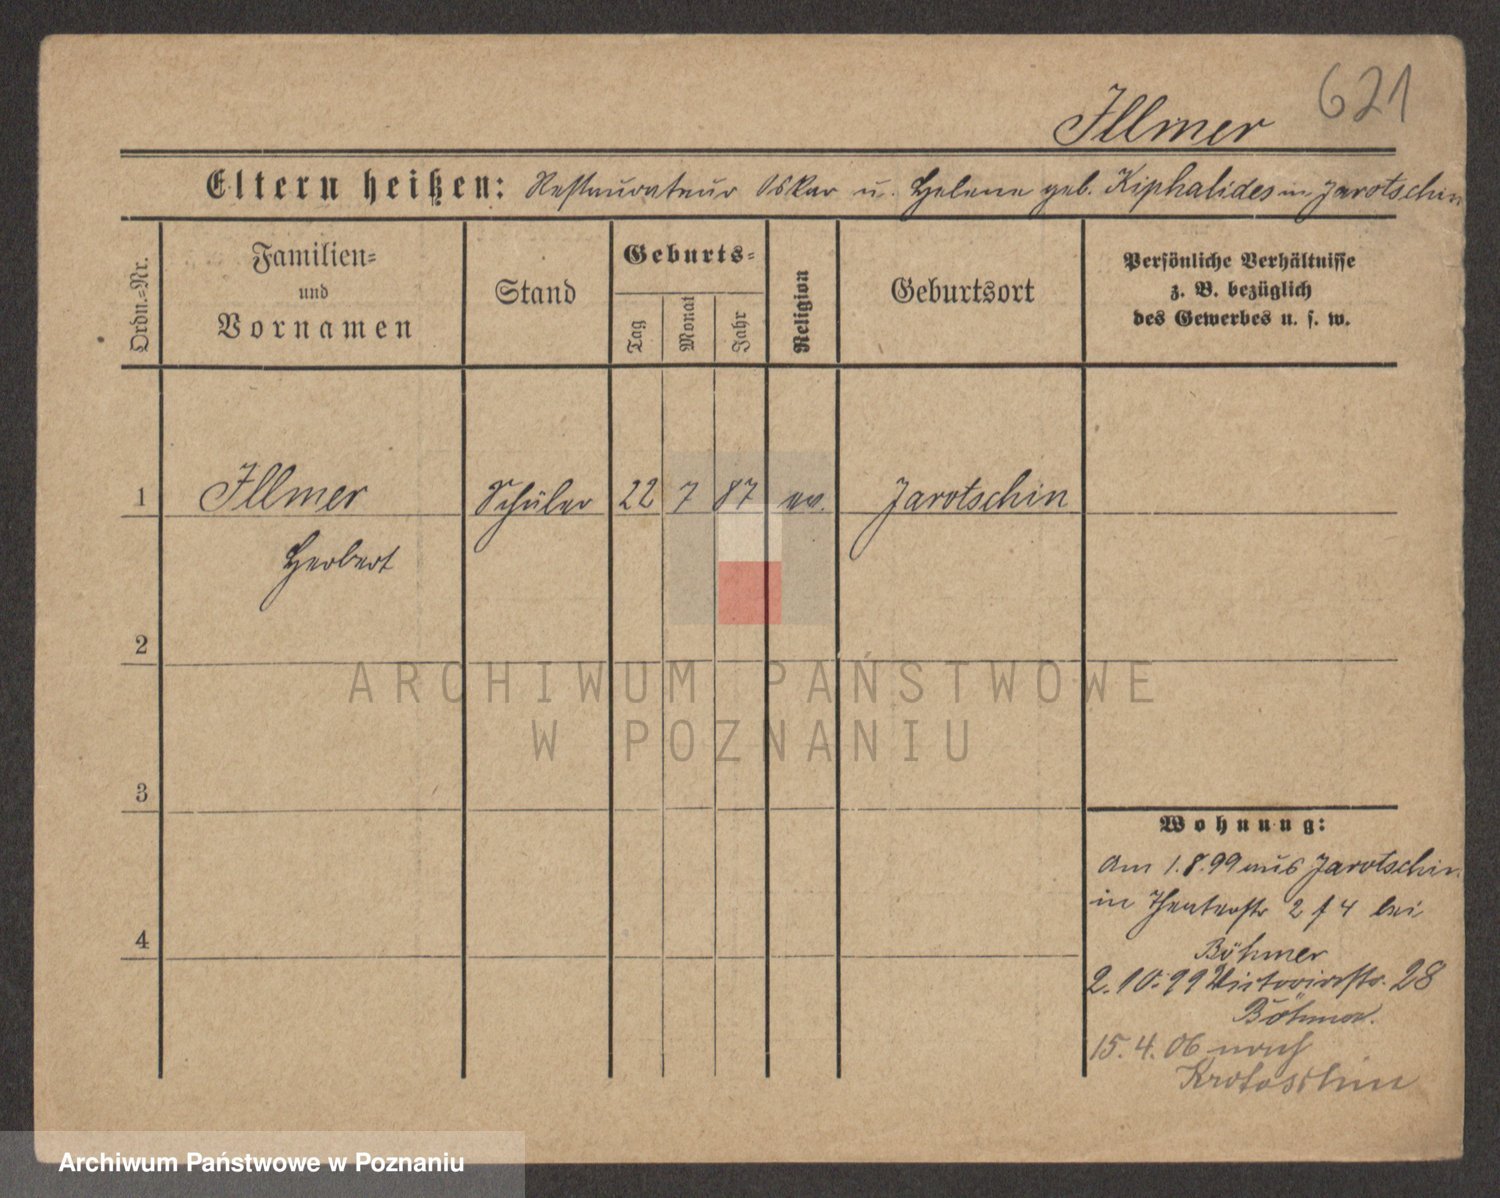 621
Illmer
Eltern heißen: Restaurateur Oskar u. Helene geb. Kiphalides in Jarotschin
Ordn.-Nr.
Familien-
und
Vornamen
Stand
Geburts-
Tag
Monat
Jahr
Religion
Geburtsort
Persönliche Verhältnisse
z. B. bezüglich
des Gewerbes u. s. w.
1 Illmer Schüler 22 7 87 ev. Jarotschin
Herbert
2
ARCHIWUM PAŃSTWOWE
W POZNANIU
3
Wohnung:
Am 1.8.99 aus Jarotschin
in Theaterstr 2 f 4 bei
4
Böhmer
2.10.99 Victoriastr. 28
Böhmer.
15.4.06 nach
Krotoschin
Archiwum Państwowe w Poznaniu